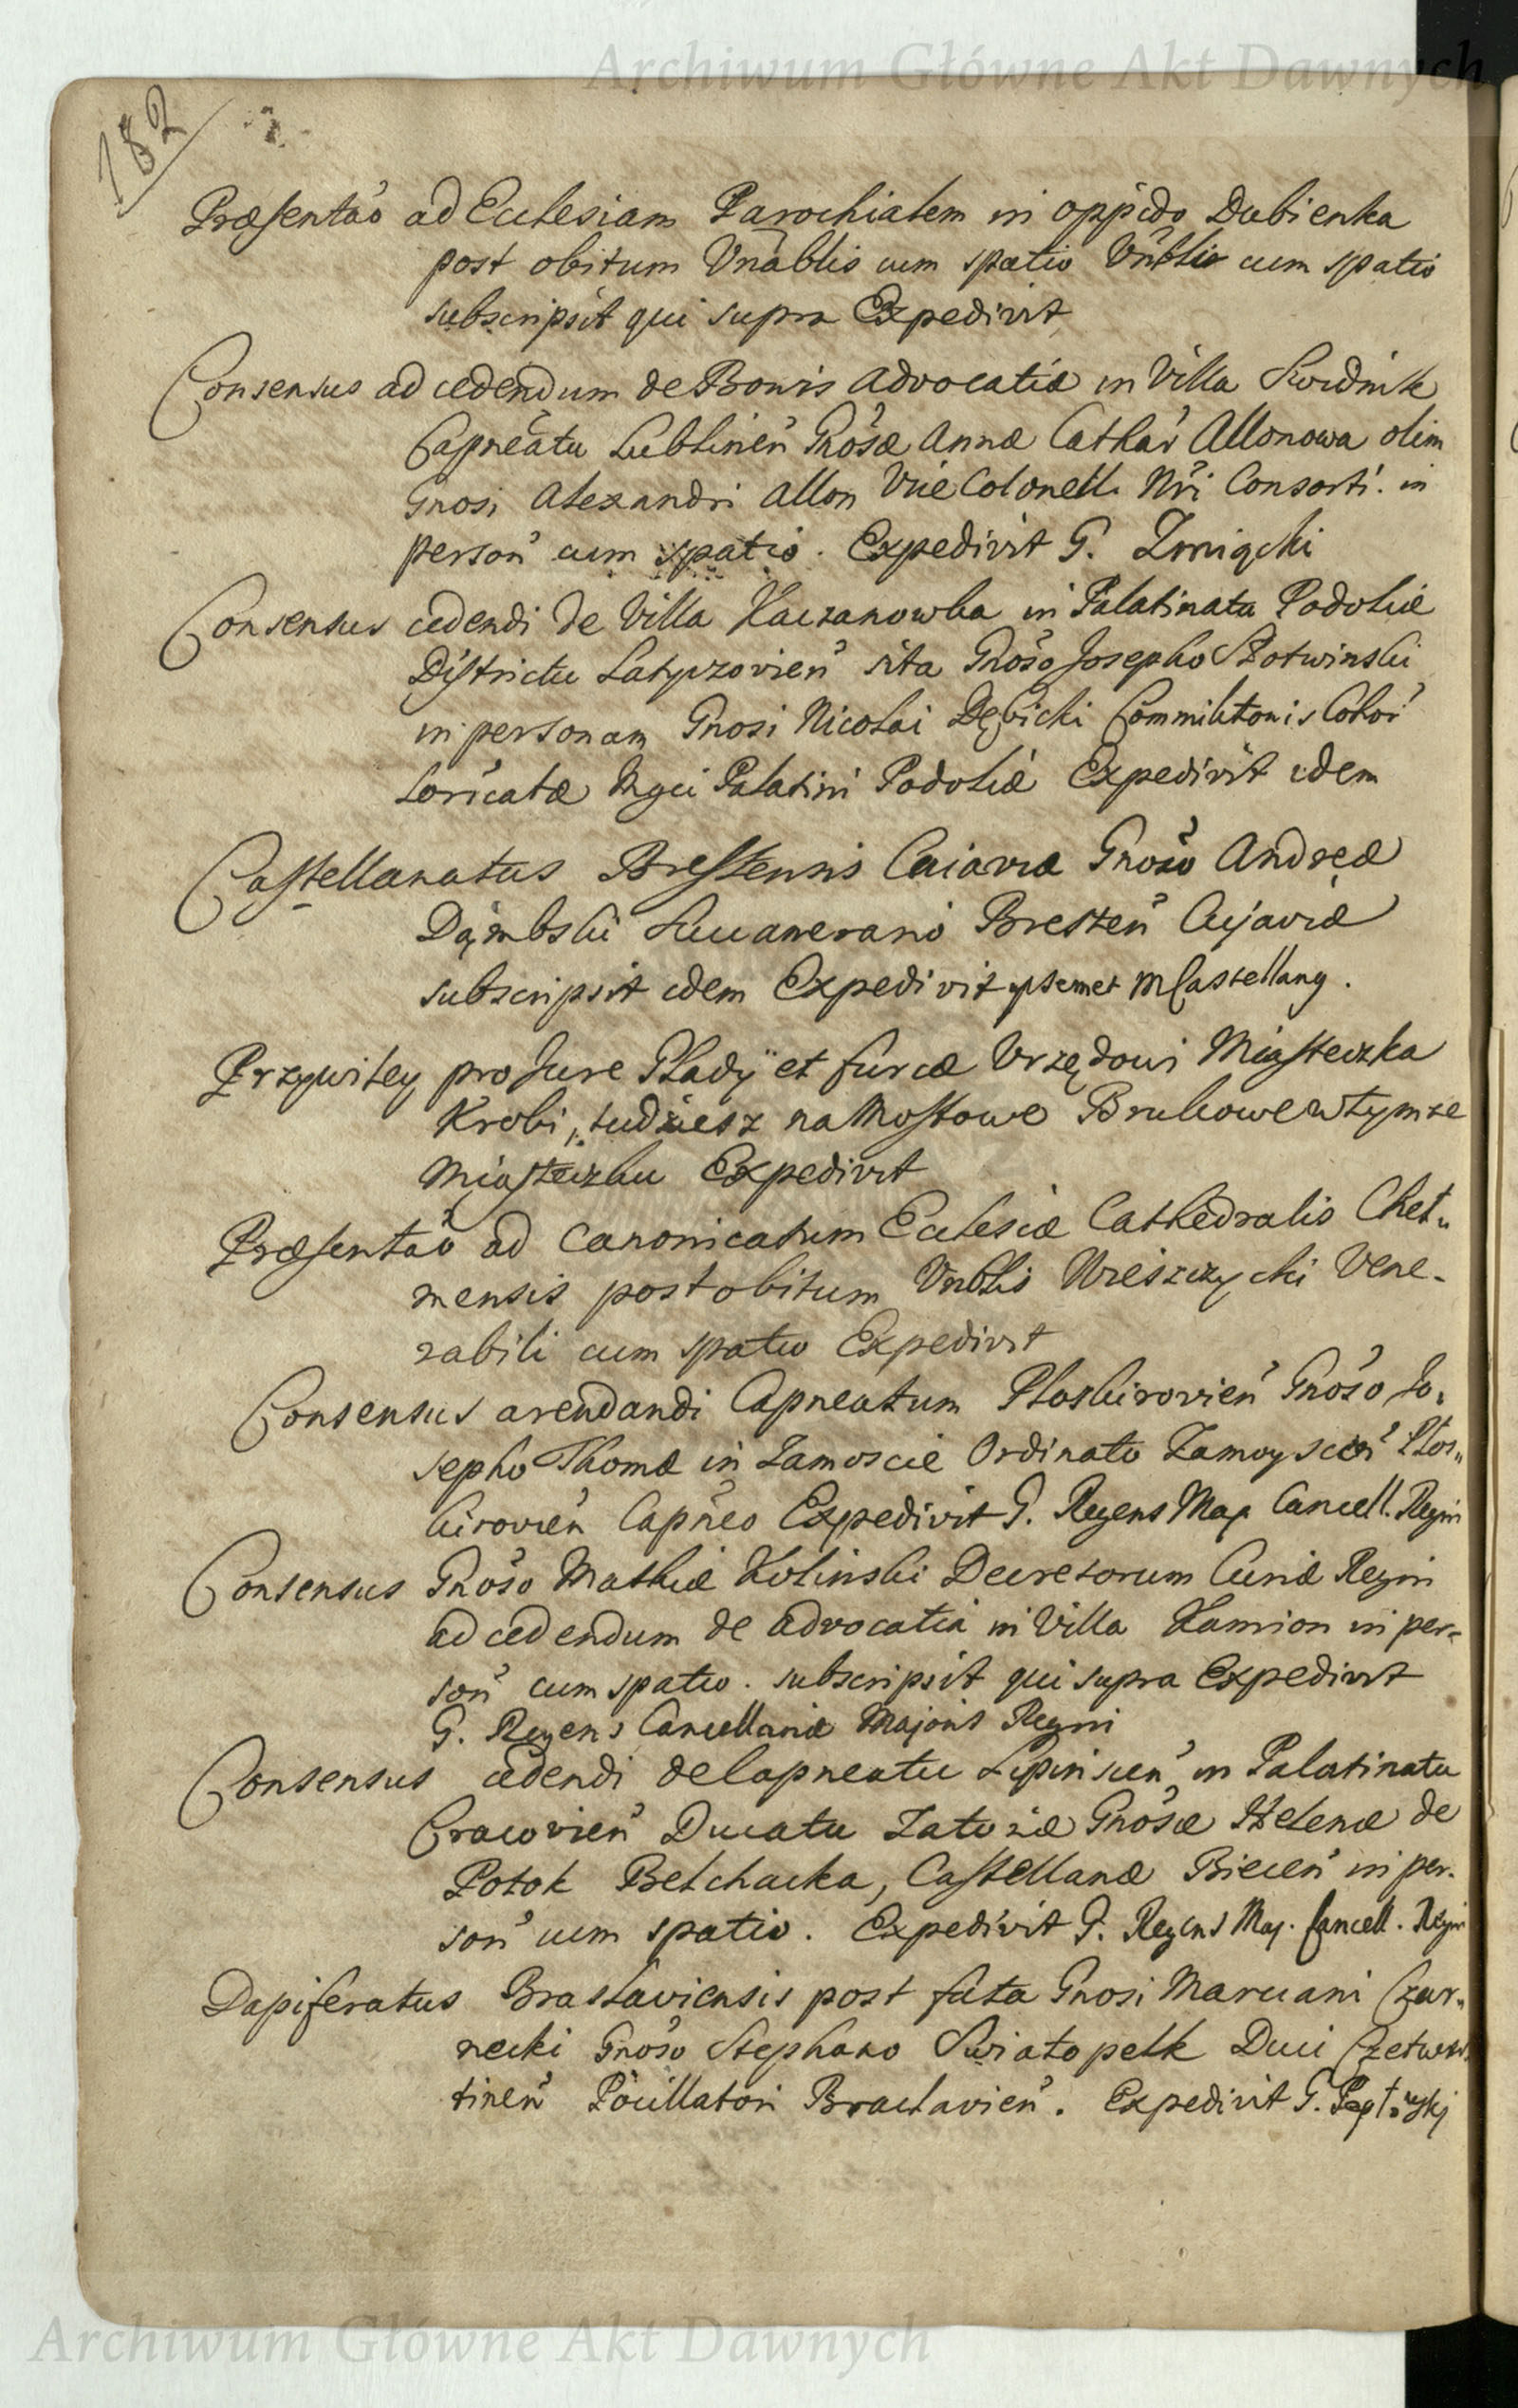 Archiwum Główne Akt Dawnych
182
Præsentaõ ad Ecclesiam Parochialem in oppido Dubienka
post obitum Vnãblis cum spatio Vnblis cum spatio
subscripsit qui supra Expedivit
Consensus ad cedendum de Bonis Advocatiæ in Villa Swidnik
Capneatu Lublineñ Gnõsæ Annæ Cathar Allonowa olim
Gnosi Alexandri Allon Vice Colonelli Nri Consorti. in
persoñ cum spatio. Expedivit G.
Consensus cedendi de Villa Kaczanowka in Palatinatu Podoliæ
Districtu Latyczovieñ sita Gnõso Josepho Słotwinski
in personam Gnosi Nicolai Dębicki Commilitonis Cohor
Loricatæ Mgci Palatini Podoliæ Expedivit idem
Castellanatus Brestensis Cuiaviæ Gnõso Andreæ
Dąmbski Succamerario Bresteñ Cujaviæ
subscripsit idem Expedivit ipsemet M Castellang.
Przywiley pro Jure Gladÿ et furcæ Vrzędowi Miasteczka
Krobi, tudziesz na Mostowe Brukowe w tymze
Miasteczku Expedivit
Præsentaõ ad Canonicatum Ecclesiæ Cathedralis Chel„
mensis post obitum Vnblis Wreszczycki Vene-
rabili cum spatio Expedivit
Consensus arendandi Capneatum Ploskirovieñ Gnõso Jo„
sepho Thomæ in Zamoscie Ordinato Zamoyscieñ Plos„
kirovieñ Capñeo Expedivit G. Regens Maj. Cancell. Regni
Consensus Gnõso Mathiæ Kolinski Decretorum Curiæ Regni
ad cedendum de Advocatia in Villa Kamion in per-
soñ cum spatio. subscripsit qui supra Expedivit
G. Regens Cancellariæ Majoris Regni
Consensus cedendi de Capneatu Lipinscieñ in Palatinatu
Cracovieñ Ducatu Zatoriæ Gnõsæ Helenæ de
Potok Belchacka, Castellanæ Biecieñ in per-
soñ cum spatio. Expedivit G. Regens Maj. Cancell. Regni
Dapiferatus Braslaviensis post fata Gnosi Marciani Czar„
necki Gnõso Stephano Swiatopelk Duci Czetwer
tineñ Pocillatori Braclavieñ. Expedivit G.
Archiwum Główne Akt Dawnych